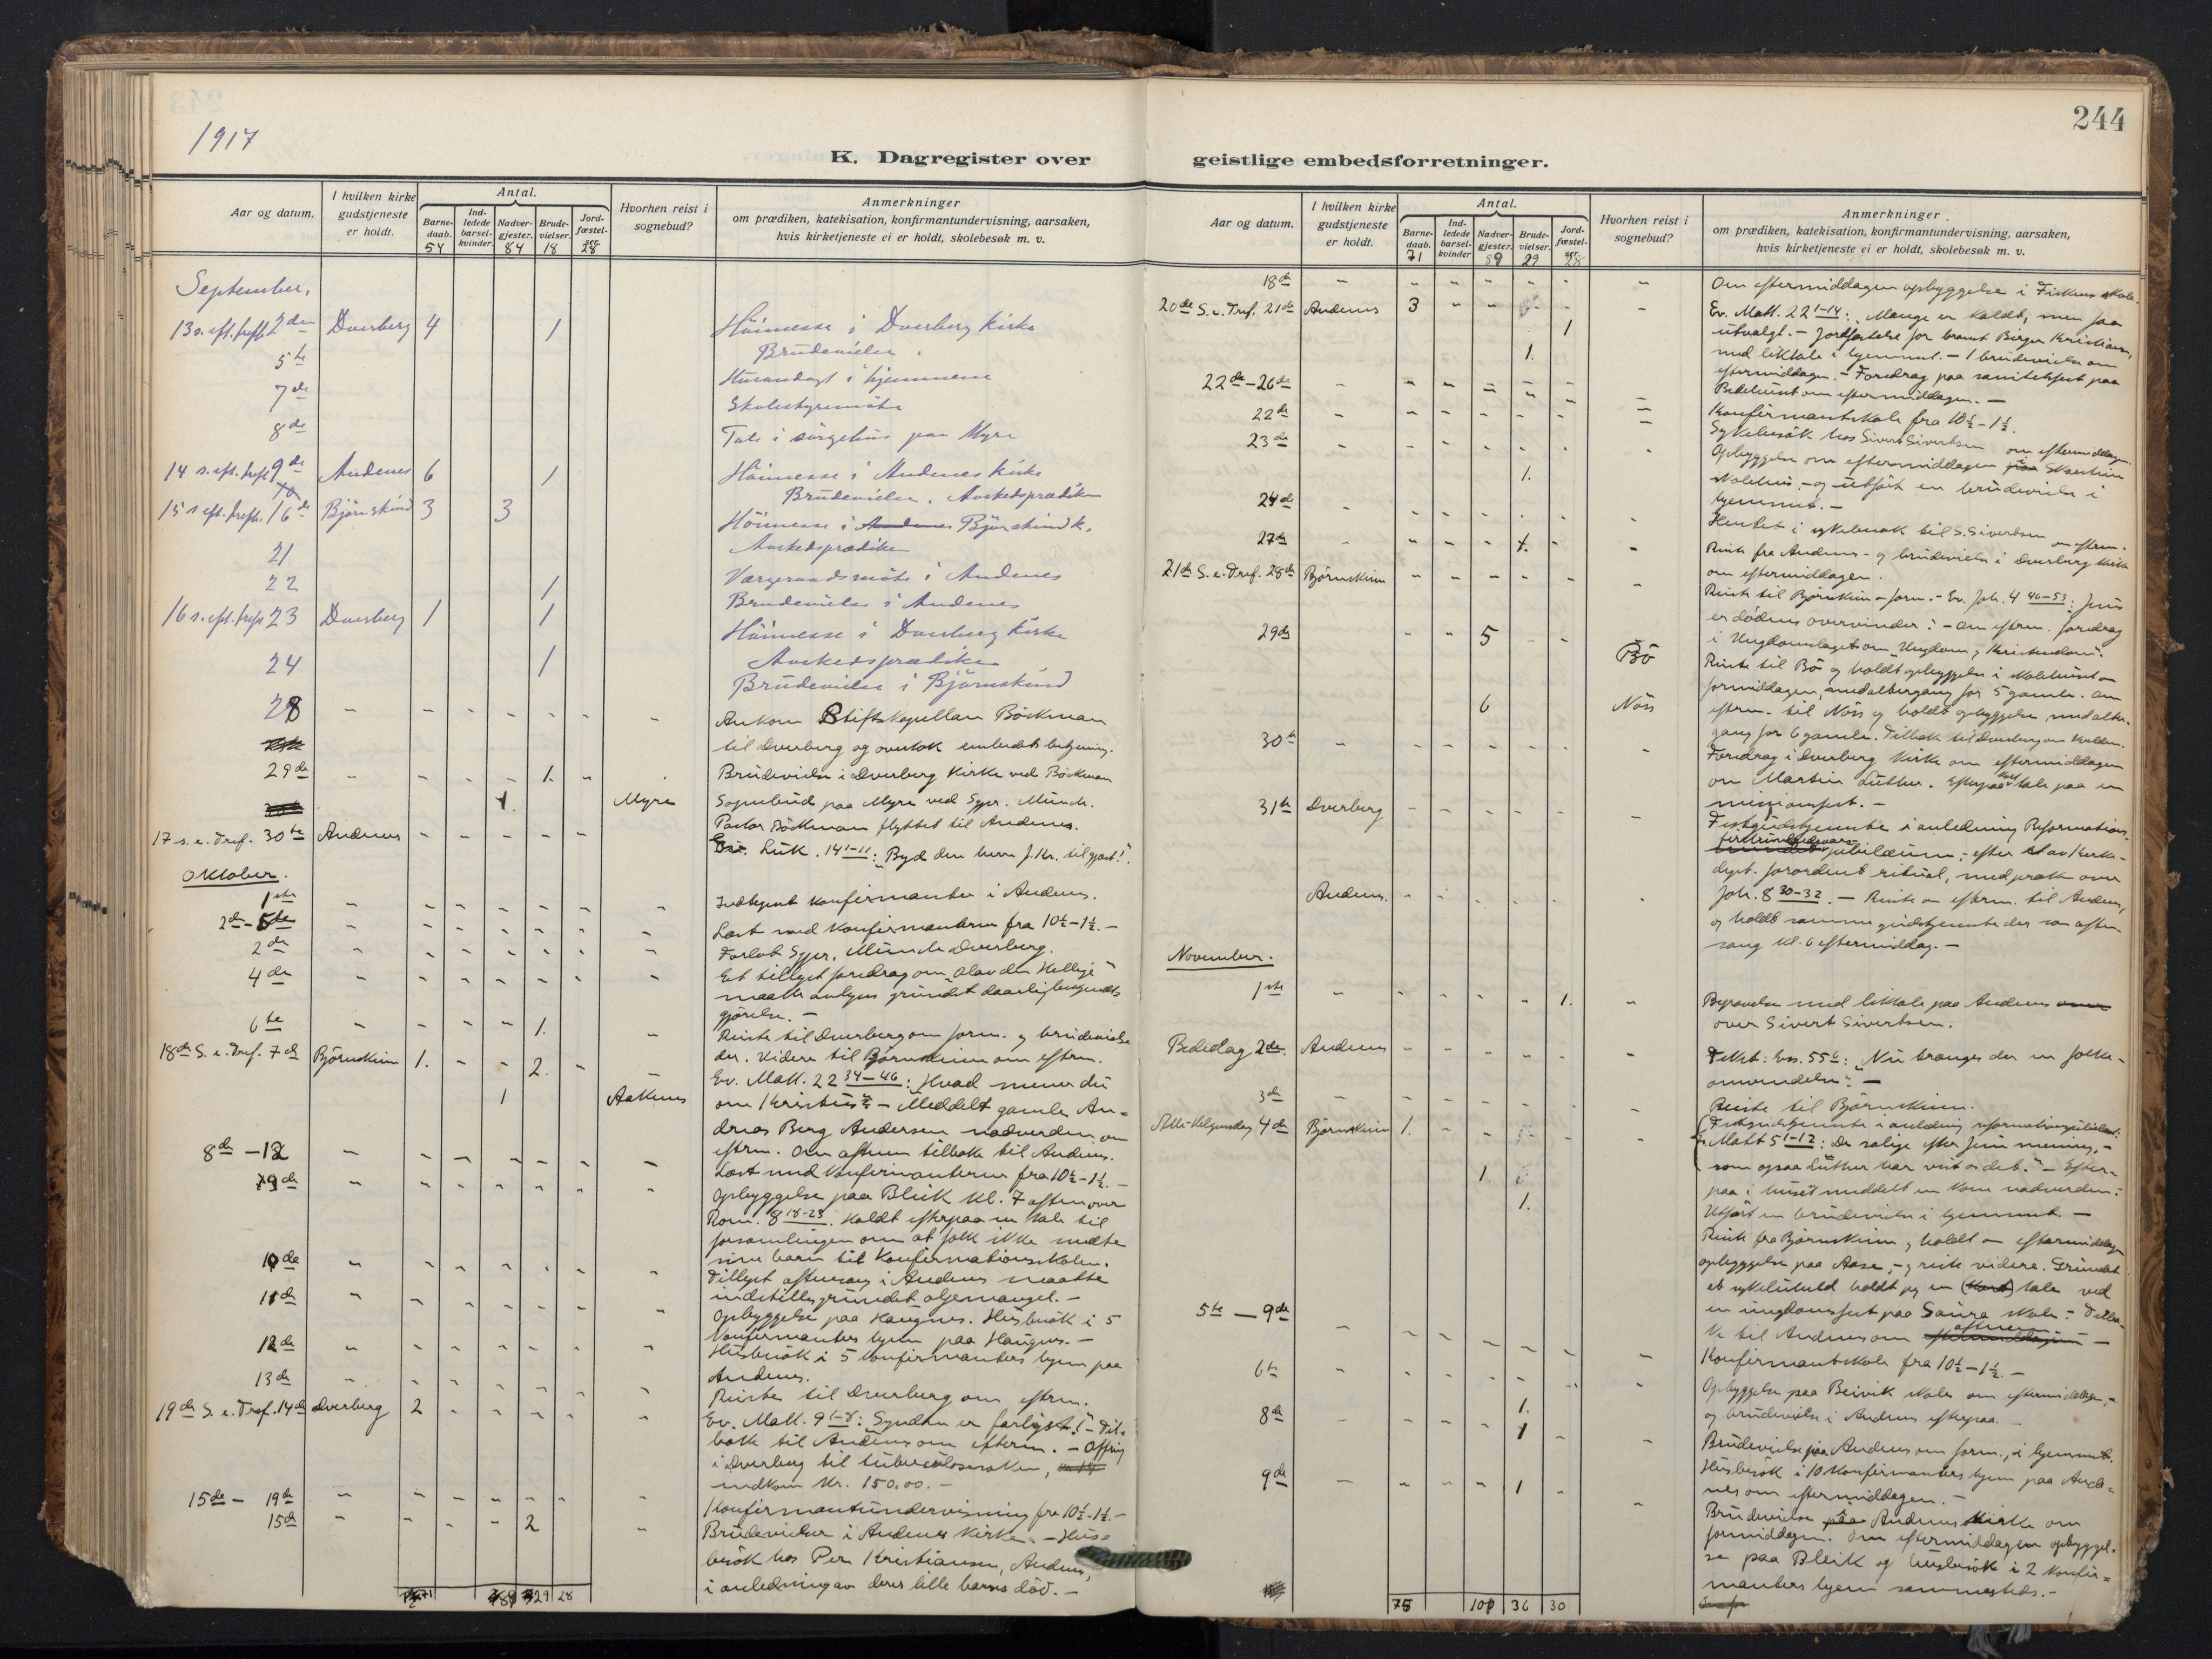 1917
K. Dagregister over
Aar og datum.
I hvilken kirke gudstjeneste er holdt.
Antal.
Barne-daab. 54
Ind-ledede barsel-kvinder.
Nadver-gjester. 84
Brude-vielser. 18
Jord-fæstel-ser 28
Hvorhen reist i sognebud?
Anmerkninger
om prædiken, katekisation, konfirmantundervisning, aarsaken,
hvis kirketjeneste ei er holdt, skolebesøk m. v.
September.
13 s. eft. treft. 2den Dverberg 4 1 Höimesse i Dverberg kirke
Brudevielse.
5te Husandagt i hjemmene
7de Skolestyremöte
8de Tale i sörgehus paa Myre
14 s. eft. treft. 9de Andenes 6 1 Höimesse i Andenes kirke
Brudevielse. Avskedsprædiken
15 s eft. treft. 16de Björnskind 3 3 Höimesse i Andenes Björnskind k.
Avskedsprædiken
21 Værgeraadsmöte i Andenes
22 1 Brudevielse i Andenes
16 s. eft. treft 23 Dverberg 1 1 Höimesse i Dverberg kirke
Avskedsprædiken
24 1 Brudevielse i Björnskind
28 - - - - - - - Ankom Stiftskapellan Böckman
til Dverberg og overtok embedets betjening.
29de - - - - 1. - Brudevielse i Dverberg Kirke ved Böckman
1. Myre Sognebud paa Myre ved Sgpr. Münch.
Pastor Böckman flyttet til Andenes.
17 s. e. Tref. 30te Andenes - - - - - Ev. Luk. 14 1-11: "Byd den herre J. Kr. til gjest!".
Oktober.
1ste - - - - - - - Indtegnet konfirmanter i Andenes.
2de - 5te - - - - - - - Læst med konfirmanterne fra 10½-1½. -
2de - - - - - - - Forlot Sgpr. Münch Dverberg.
4de - - - - - - - Et tillyst foredrag om "Olav den Hellige"
maatte avlyses grundet daarlig bekjendt-
gjörelse. -
6te - - - - 1. - Reiste til Dverberg om form. og brudevielse
der. Videre til Björnskinn om eftrm.
18de S. e. Tref. 7de Björnskinn 1. - - 2. - - Ev. Matt. 22 34-46: "Hvad mener du
1 Aaknes om Kristus?" - Meddelt gamle An-
dreas Berg Andersen nadverden om
eftrm. Om aftenen tilbake til Andenes.
8de - 12 - - - - - - - Læst med konfirmanterne fra 10½-1½. -
9de - - - - - - - Opbyggelse paa Bleik kl. 7 aften over
Rom. 8 18-23. Holdt efterpaa en tale til
forsamlingen om at folk ikke nødte
sine barn til konfirmationsskolen.
10de - - - - - - - Tillyst aftensang i Andenes maatte
indstilles grundet oljemangel. -
11de - - - - - - - Opbyggelse paa Haugnes. Husbesök i 5
konfirmanters hjem paa Haugnes. -
12de - - - - - - - Husbesök i 5 konfirmanters hjem paa
Andenes.
13de - - - - - - - Reiste til Dverberg om eftrm.
19de S. e. Tref. 14de Dverberg 2 - - - - - Ev. Matt. 9 1-8: "Synden er farligst!" - Til-
bake til Andenes om efterm. - Offring
i Dverberg til tuberculosesaken,
indkom Kr. 150,00. -
15de - 19de - - - - - - - Konfirmantundervisning fra 10½-1½. -
15de - - - - 2 - Brudevielser i Andenes Kirke. - Hus-
besök hos Per Kristiansen, Andenes,
i anledning av deres lille barns död. -
71 89 29 28
244
geistlige embedsforretninger.
Aar og datum.
I hvilken kirke gudstjeneste er holdt.
Antal.
Barne-daab. 71
Ind-ledede barsel-kvinder
Nadver-gjester. 89
Brude-vielser. 29
Jord-fæstel-ser 28
Hvorhen reist i sognebud?
Anmerkninger
om prædiken, katekisation, konfirmantundervisning, aarsaken,
hvis kirketjeneste ei er holdt, skolebesøk m. v.
18de - - - - - - - Om eftermiddagen opbyggelse i Fiskenes skole.
20de S. e. Tref. 21de Andenes 3 - - - - Ev. Matt. 22 1-14: "Mange er kaldt, men faa
1 utvalgt. - Jordfæstelse for barnet Birger Kristiansen,
1. med liktale i hjemmet. - 1 brudevielse om
eftermiddagen. - Foredrag paa sanitetsfest paa
Bedehuset om eftermiddagen. -
22de - 26de - - - - - - - Konfirmantskole fra 10½ - 1½.
22de - - - - - - - Sykebesök hos Sivert Sivertsen om eftermiddagen.
23de - - - - 1. - Opbyggelse om eftermiddagen paa
skolehus, - og utfört en brudevielse i
hjemmet. -
24de - - - - - - Hentet i sykebesök til S. Sivertsen om eftrm.
27de - - - - 1. - - Reiste fra Andenes - og brudevielse i Dverberg kirke
om eftermiddagen.
21de S. e. Tref. 28de Björnskinn - - - - - - Reiste til Björnskinn om form. - Ev. Joh. 4 46-53: "Jesus
er dödens overvinder". - Om eftrm. foredrag
i Ungdomslaget om "Ungdom og Kristendom".
29de - - 5 - - Bö Reiste til Bö og holdt opbyggelse i skolehuset om
formiddagen, med altergang for 5 gamle. Om
6 Nöss eftrm. til Nöss og holdt opbyggelse med alter-
gang for 6 gamle. Tilbake til Dverberg om kvelden.
30te - - - - - - - Foredrag i Dverberg kirke om eftermiddagen
om Martin Luther. Efterpaa holdt tale paa en
missionsfest. -
31te Dverberg - - - - - - Festgudstjeneste i anledning Reformations-
jubilæum, - efter et av Kirke-
dept. forordnet ritual, med præk. over
Joh. 8 30-32. - Reiste om eftrm. til Andenes,
Andenes. - - - - - og holdt samme gudstjeneste der som aften-
sang kl. 6 eftermiddag. -
November.
1ste - - - - - 1. - Begravelse med liktale paa Andenes over
over Sivert Sivertsen.
Bededag 2de. Andenes - - - - - - Tekst: Ess. 55 6: "Nu trænges der en folke-
omvendelse". -
3de - - - - - - - Reiste til Björnskinn.
Alle-Helgensdag 4de Björnskinn 1. - - - - Festgudstjeneste i anledning reformationsjubilæet:
Ev. Matt 5 1-12: "De salige efter Jesu mening, -
som ogsaa Luther har vist os det." - Efter-
1. paa i huset meddelt en kone nadverden. -
1. Utfört en brudevielse i hjemmet. -
Reiste fra Björnskinn og holdt om eftermiddagen
opbyggelse paa Aase, - og reiste videre. Grundet
et sykebud holdt jeg en (kort) tale ved
en ungdomsfest paa Saura skole. - Tilba-
ke til Andenes om aftenen eftermiddagen -
5te - 9de - - - - - - - Konfirmantskole fra 10½-1½. -
6te - - - - 1. - - Opbyggelse paa Breivik skole om eftermiddagen, -
og brudevielse i Andenes efterpaa. -
8de - - - - 1 - - Brudevielse paa Andenes om form., i hjemmet.
Husbesök i 10 konfirmanters hjem paa Ande-
nes om eftermiddagen. -
9de - - - - 1 - - Brudevielse paa Andenes Kirke om
formiddagen. Om eftermiddagen opbyggel-
se paa Bleik og husbesök i 2 konfir-
manters hjem sammesteds. -
75 101 36 30